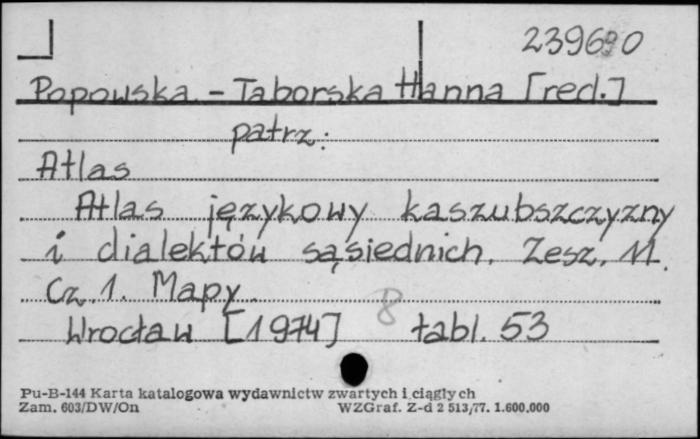 239690
Popowska - Taborska Hanna [red.]
patrz:
Atlas
Atlas językowy kaszubszczyzny
i dialektów sąsiednich. Zesz. 11.
Cz. 1. Mapy.
8
Wrocław [1974] tabl. 53
Pu-B-144 Karta katalogowa wydawnictw zwartych i ciągłych
Zam. 603/DW/On WZGraf. Z-d 2 513/77. 1.600.000